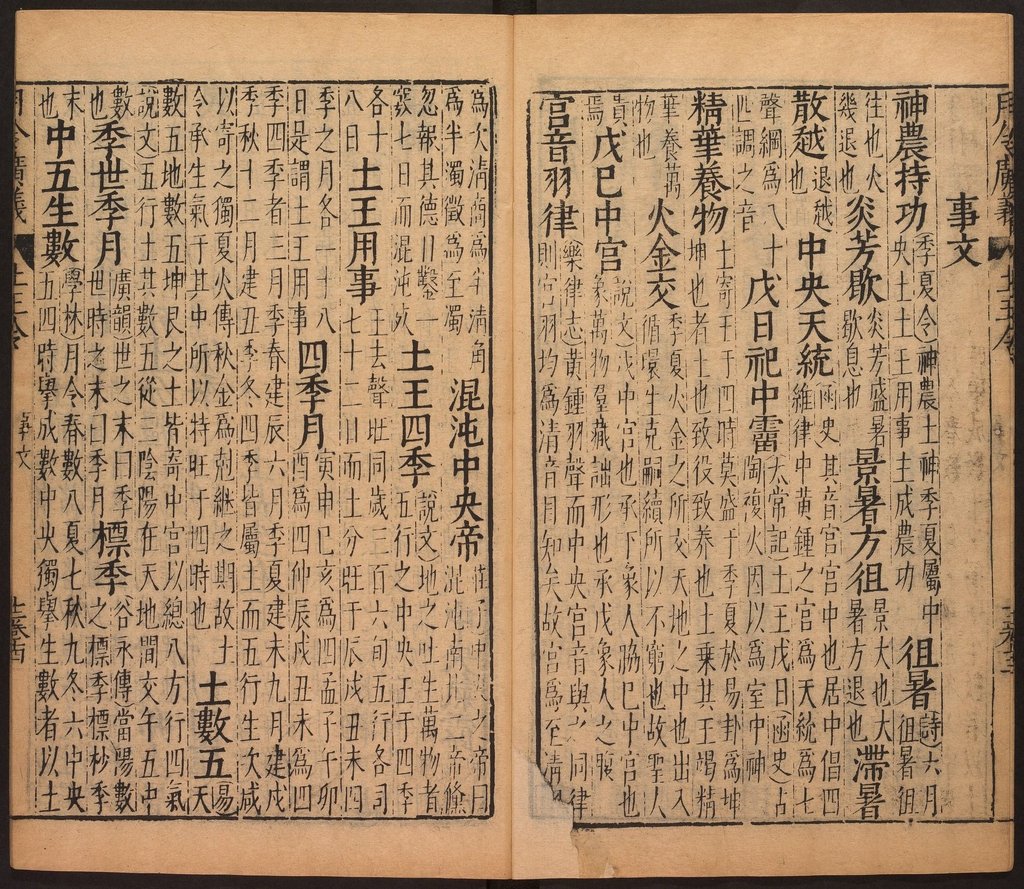 月令廣義
事文
神農持功 季夏令神農土神季夏屬中
央土土王用事主成農功
徂暑 詩六月
徂暑徂
往也火
幾退也
炎芳歇 炎芳盛暑
歇息也
景暑方徂 景大也大
暑方退也
滯暑
散越 越退
也
中央天統 函史其音宮宮中也居中倡四
維律中黃鍾之宮爲天統爲七
聲綱爲八十
匹調之音
戊日祀中霤 太常記土王戊日函史占
陶複火因以爲室中神
精華養物 土寄王于四時莫盛于季夏於易卦爲坤
坤也者土也致役致養也土乘其王竭精
華養萬
物也
火金交 季夏火金之所交天地之中也出入
循環生克嗣續所以不窮也故聖人
貴
焉
戊巳中宮 說文戊中宮也承下象人脇巳中宮也
象萬物辟藏詘形也承戊象人之腹
宮音羽律 樂律志黃鍾羽聲而中央宮音與之同律
則宮羽均爲清音月知矣故宮爲至清
爲次清商爲半清角
爲半濁徵爲至濁
混沌中央帝 莊子中央之帝曰
混沌南北二帝儵
忽報其德日鑿一
竅七日而混沌死
土王四季 說文地之吐生萬物者
五行之中央王于四季
各十
八日
土王用事 王去聲旺同歲三百六旬五行各司
七十二日而土分旺于辰戌丑未四
季之月各一十八
日是謂土王用事
四季月 寅申巳亥爲四孟子午卯
酉爲四仲辰戌丑未爲四
季四季者三月季春建辰六月季夏建未九月建戌
季秋十二月建丑季冬四季皆屬土而五行生次咸
以寄之獨夏火傳秋金爲剋繼之期故土
令承生氣于其中所以特旺于四時也
土數五 易
天
數五地數五坤艮之土皆寄中宮以總八方行四氣
說文五行土其數五從二陰陽在天地間交午五中
數
也
季世季月 廣韻世之末曰季
世時之末曰季月
標季 谷永傳當陽數
之標季標杪季
末
也
中五生數 學林月令春數八夏七秋九冬六中央
五四時舉成數中央獨舉生數者以土
月令廣義 土王令 事文